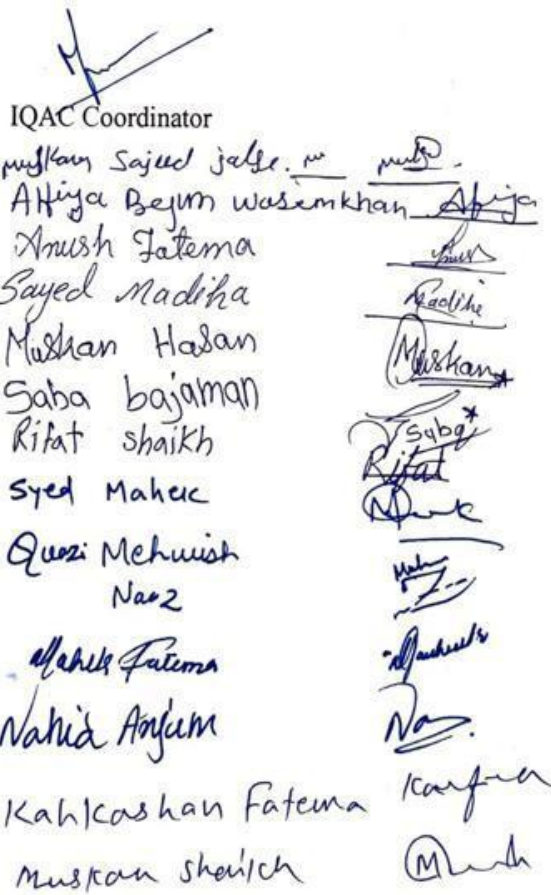 IQAC Coordinator
Muskan Sajeed jalse.
Afiya Begum wasimkhan Afiya
Anush Fatema
Sayed Madiha Madiha
Muskan Hasan Muskan
Saba bajaman Saba
Rifat shaikh Rifat
Syed Mahek
Quazi Mehwish
Naaz
Mahek Fatema
Nahid Anjum Na
Kahkashan Fatema
Muskan shaikh